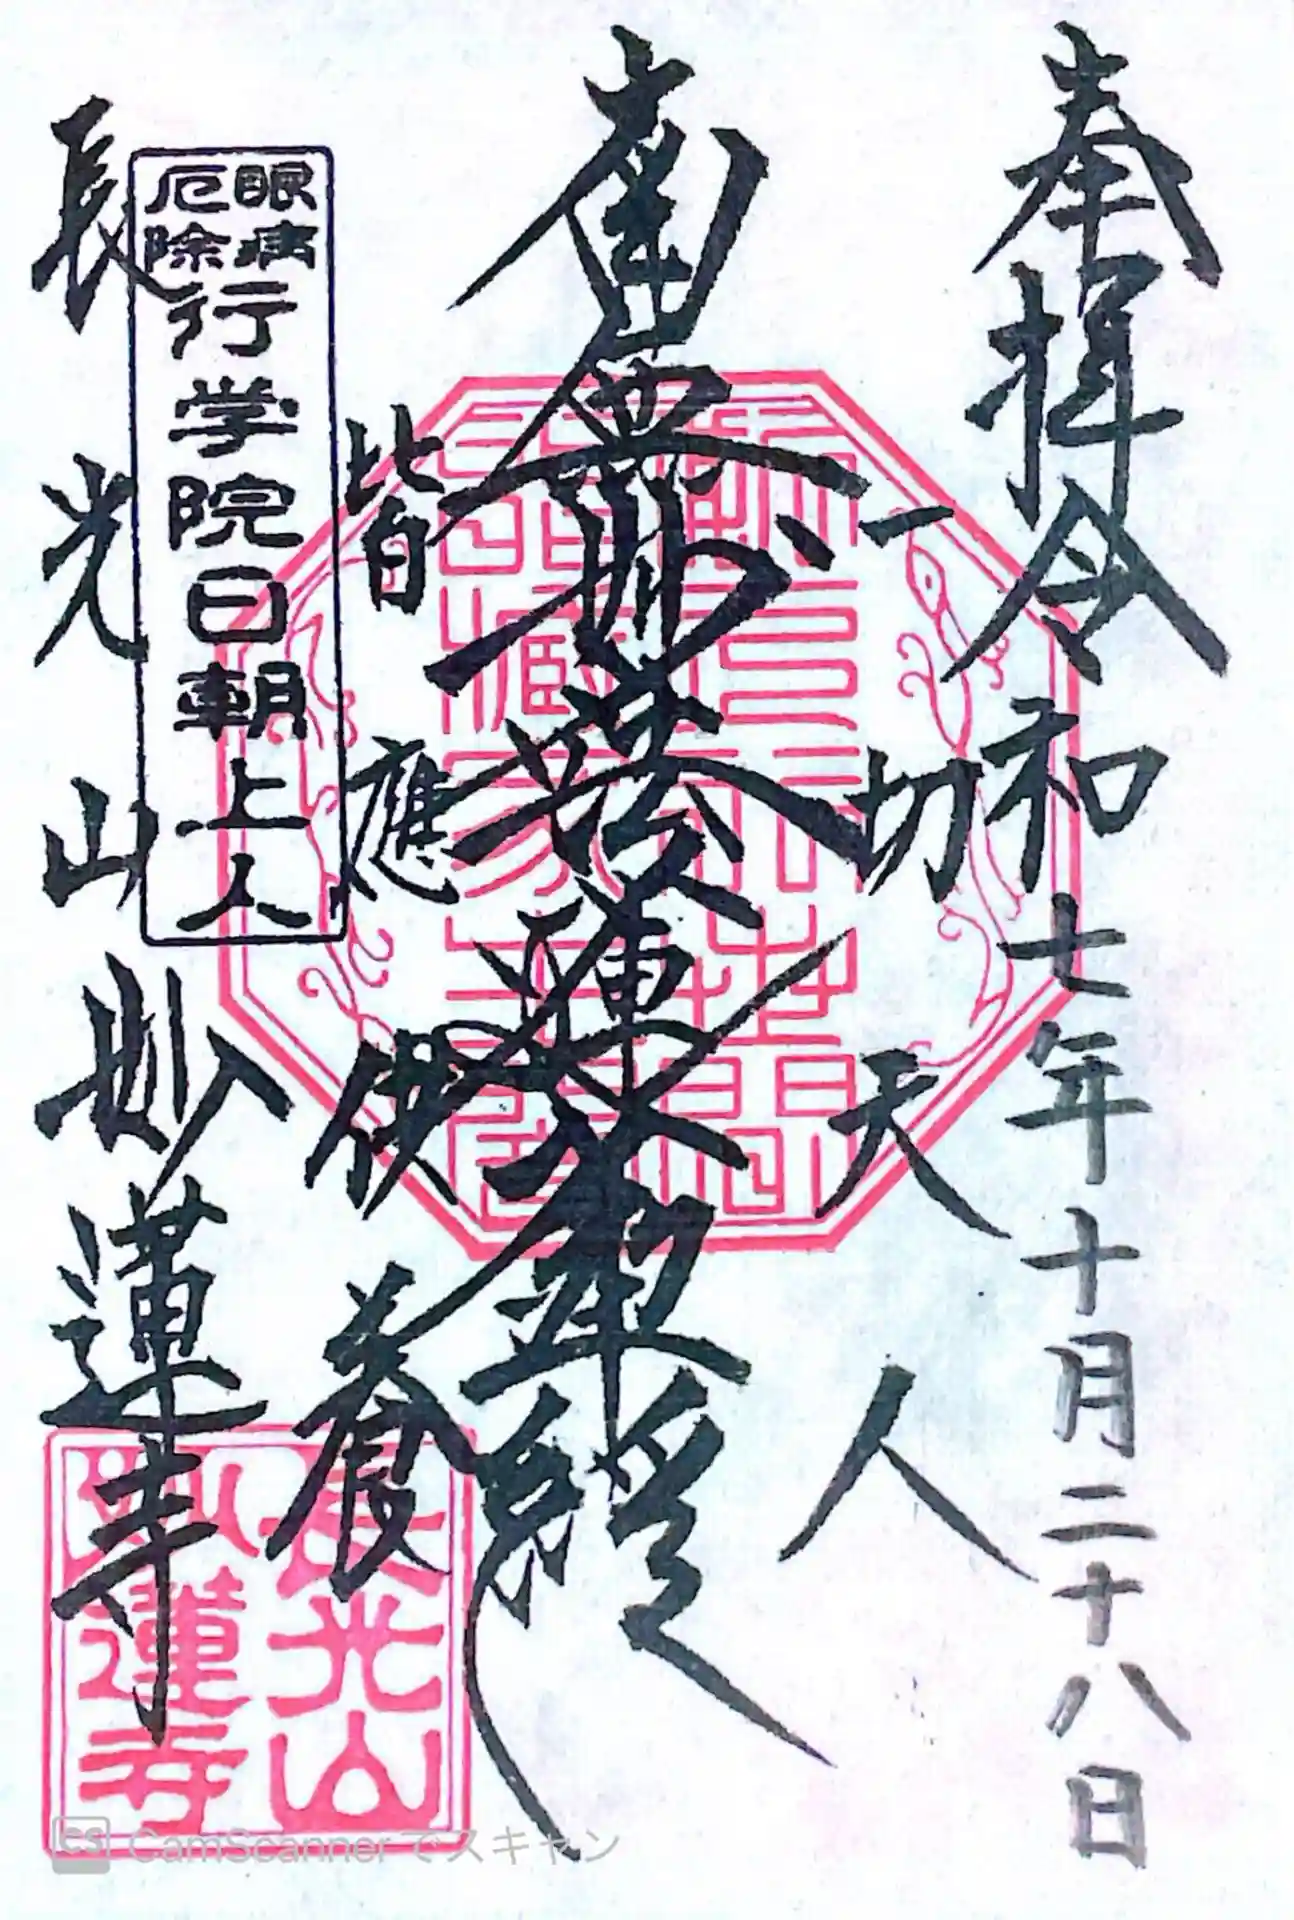 奉拝 令和七年十月二十八日
一切天人
南無妙法蓮華経
皆應供養
眼病
厄除
行学院日朝上人
長光山妙蓮寺
長光山
妙蓮寺
CS CamScannerでスキャン